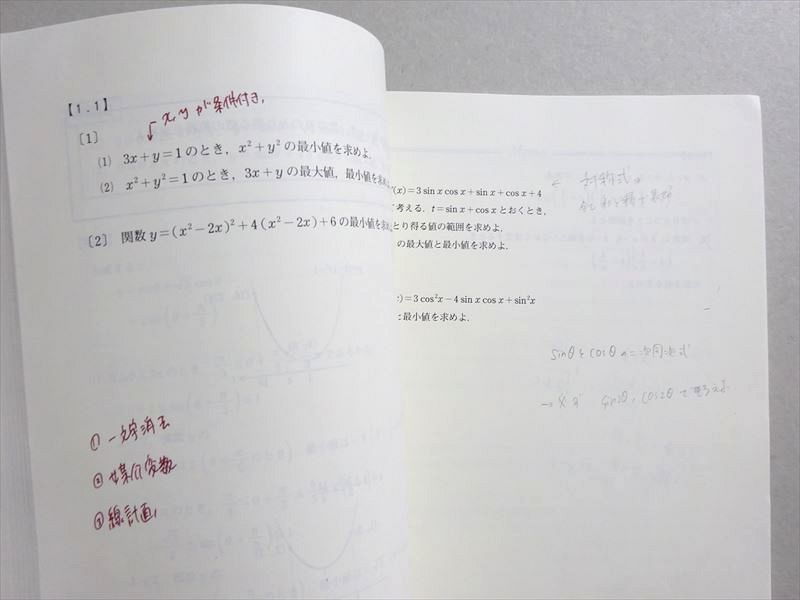 【1.1】
x, y が条件付き.
〔1〕
(1) 3x+y=1のとき, x²+y²の最小値を求めよ.
(2) x²+y²=1のとき, 3x+yの最大値, 最小値を求め
〔2〕 関数y=(x²−2x)²+4(x²−2x)+6の最小値を求
① 一文字消去
② 媒介変数
③ 線型計画
(x)=3 sin x cos x+sin x+cos x+4
考える. t=sin x+cos xとおくとき,
とり得る値の範囲を求めよ.
の最大値と最小値を求めよ.
← 対称式は
和と積で表す
)=3 cos²x−4 sin x cos x+sin²x
と最小値を求めよ.
sinθとcosθの二次同次式
→ 必ず sin2θ, cos2θで